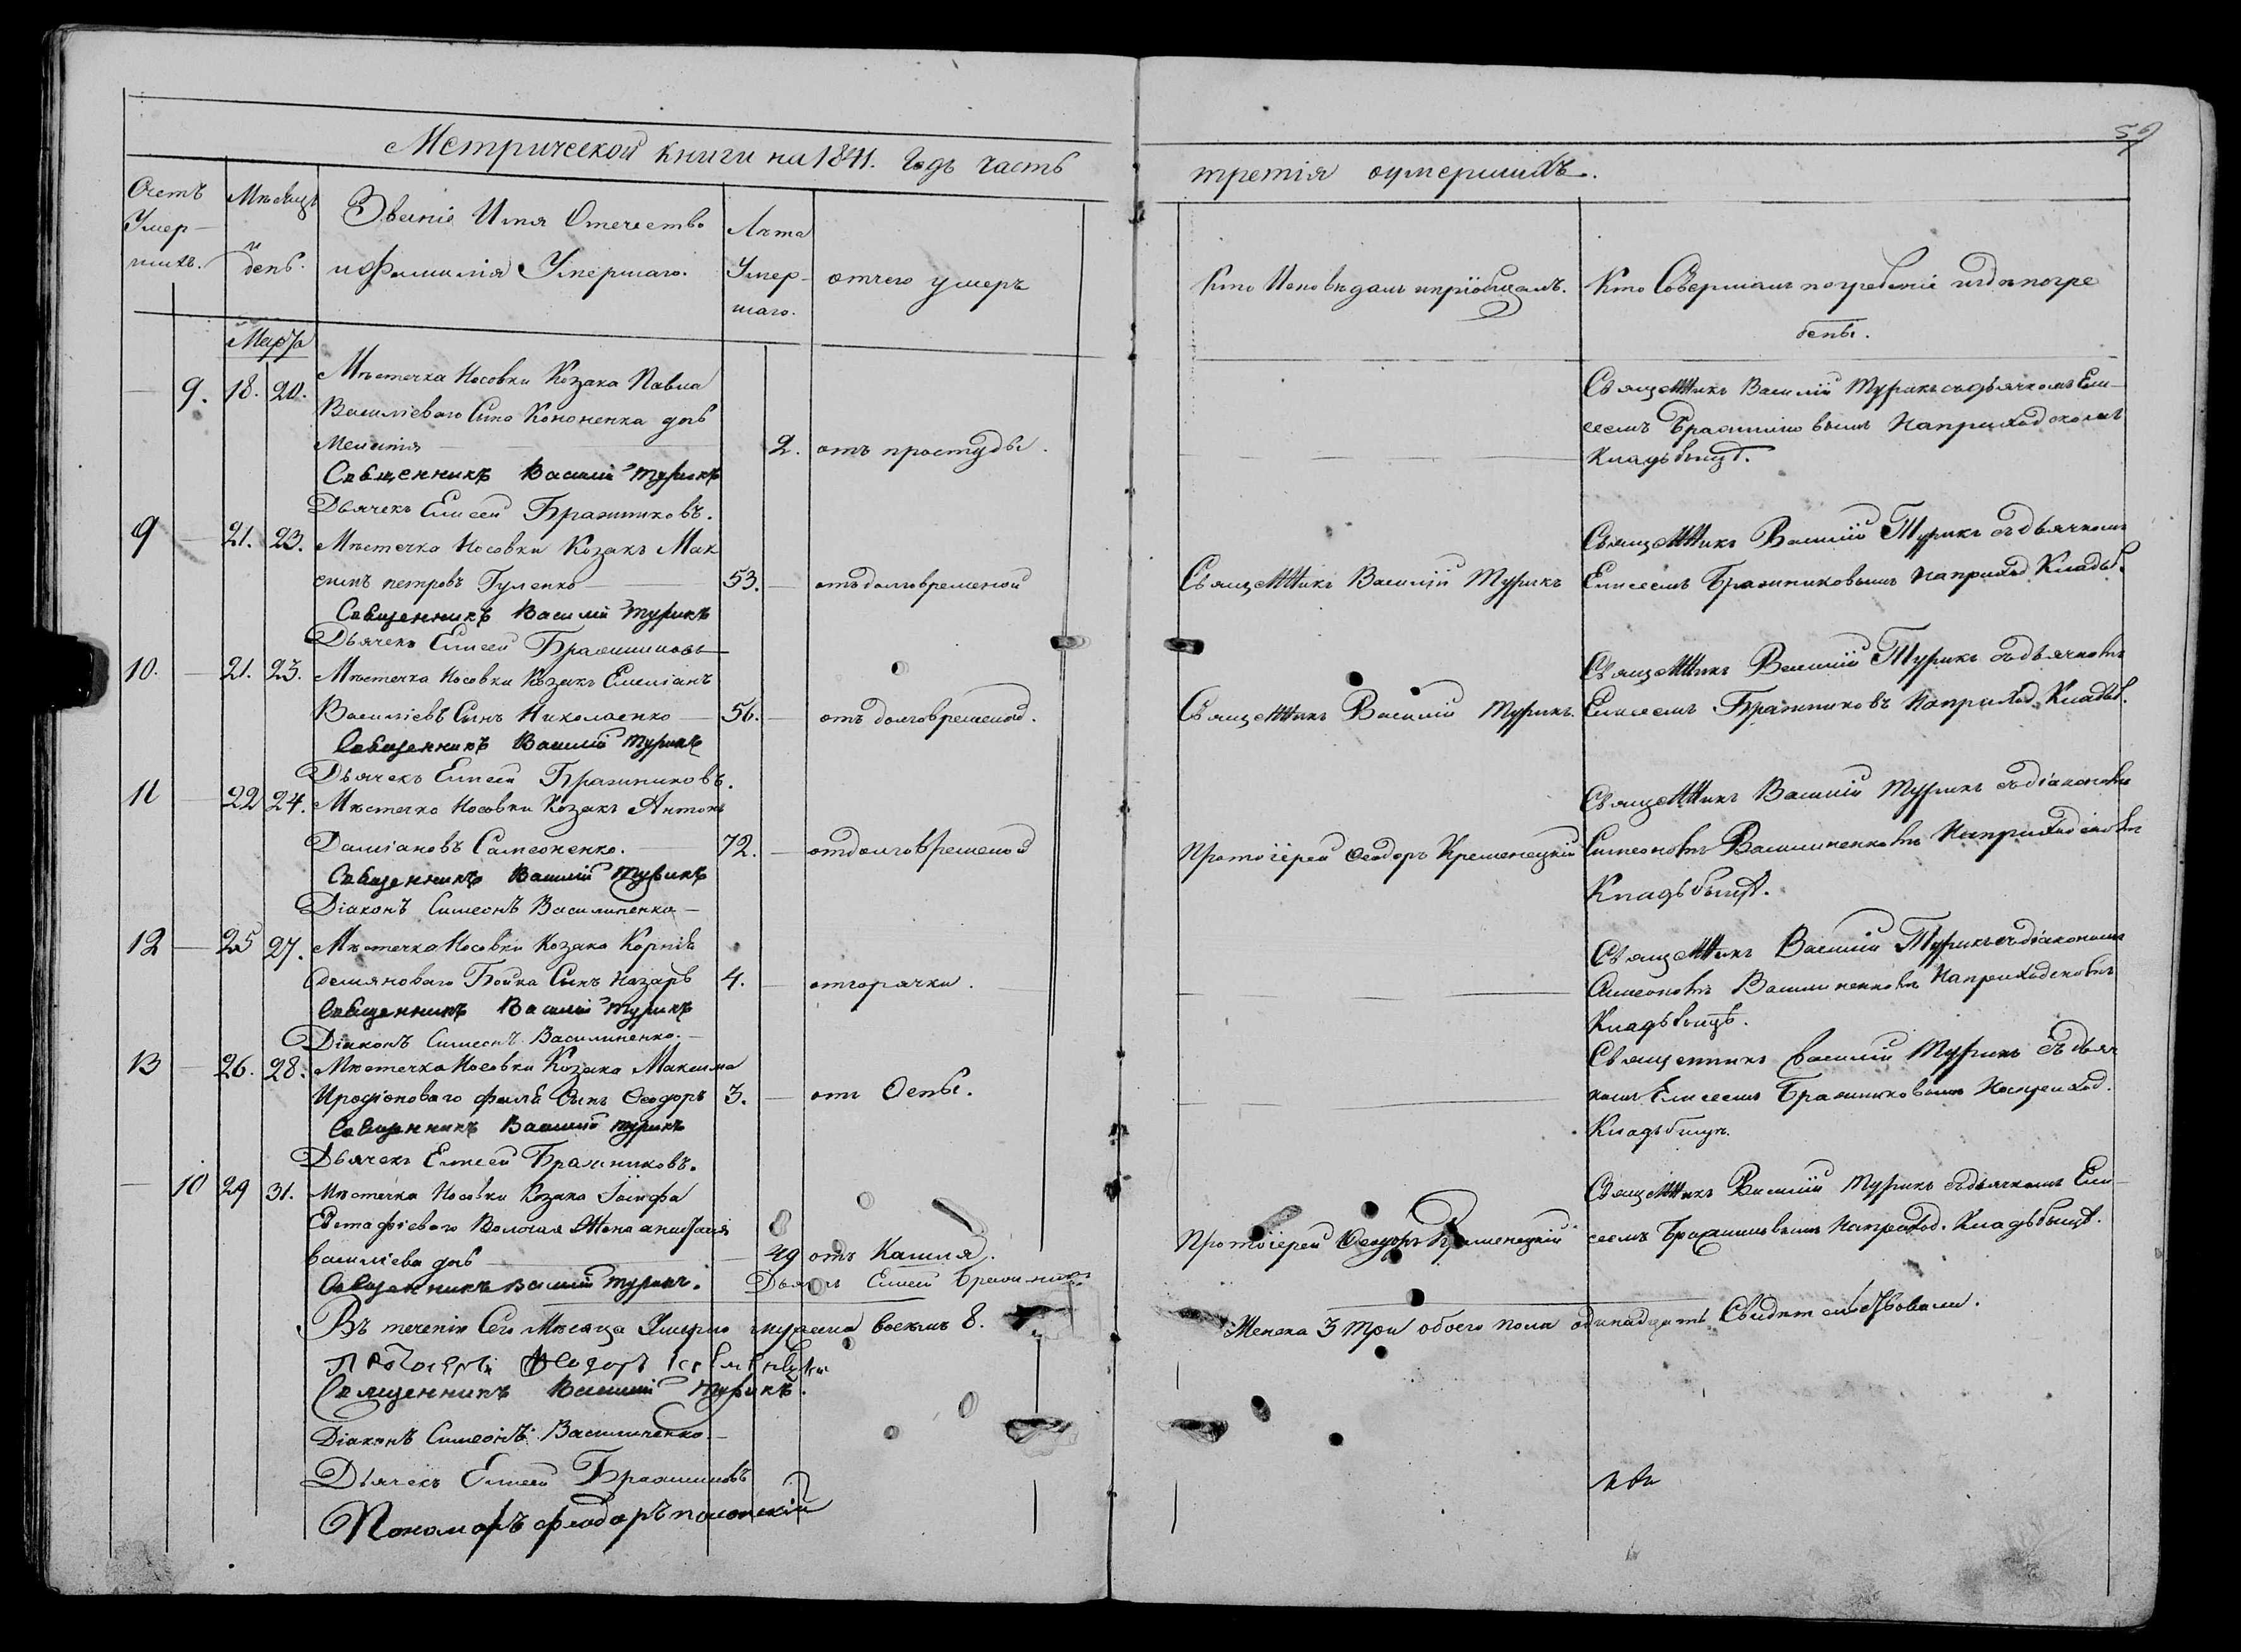 Метрической книги на 1841. Годъ часть
третія оумершихъ.
59
Счетъ
Умер-
шихъ.
Мѣсяцъ
и
день.
Званіе Имя Отечество
и Фамилія Умершаго.
Лѣта
Умер-
шаго.
отчего умеръ
Кто Исповѣдалъ и пріобщалъ.
Кто Совершалъ погребеніе и гдѣ погре
бены.
Марта
— 9. 18. 20. Мѣстечка Носовки Козака Павла
Василіеваго Сына Кононенка дочь
Меланія — 2. отъ простуды.
Священникъ Василій Турикъ
Дьячекъ Елисей Бражниковъ.
Священникъ Василій Турикъ съ дьячкомъ Ели-
сеемъ Бражниковымъ На приходскомъ
Кладбыщѣ.
9 — 21. 23. Мѣстечка Носовки Козакъ Мак
симъ петровъ Гуленко — 53. — отъ долговременой
Священникъ Василій Турикъ
Дьячекъ Елисей Бражниковъ
Священникъ Василій Турикъ
Священникъ Василій Турикъ съ дьячкомъ
Елисеемъ Бражниковымъ На приход. Кладб.
10. — 21. 23. Мѣстечка Носовки Козакъ Емеліанъ
Василіевъ Сынъ Николаенко — 56. — отъ долговременой.
Священникъ Василій Турикъ
Дьячекъ Елисей Бражниковъ.
Священникъ Василій Турикъ.
Священникъ Василій Турикъ съ дьячкомъ
Елисеемъ Бражниковъ На приход. Кладб.
11 — 22 24. Мѣстечка Носовки Козакъ Антонъ
Даміановъ Самсоненко. 72. — от долговременой
Священникъ Василій Турикъ
Діаконъ Симеонъ Василиненко —
Протоіерей Феодоръ Кременецкій
Священникъ Василій Турикъ съ діакономъ
Симеономъ Василиненкомъ На приходскомъ
Кладбыщѣ.
12 — 25 27. Мѣстечка Носовки Козака Корнія
Демяноваго Бойка Сынъ Назарѣ 4. — от горячки.
Священникъ Василій Турикъ
Діаконъ Симеонъ Василиненко. —
Священникъ Василій Турикъ съ діакономъ
Симеономъ Василиненкомъ На приходскомъ
Кладбыщѣ.
13 — 26. 28. Мѣстечка Носовки Козака Максима
Иродіоноваго Сынъ Феодоръ 3. — отъ Оспы.
Священникъ Василій Турикъ
Дьячекъ Елисей Бражниковъ.
Священникъ Василій Турикъ съ дьяч
комъ Елисеемъ Бражниковымъ На приход.
Кладбищѣ.
— 10 29 31. Мѣстечка Носовки Козака Іосифа
Евстафіеваго Жена анастасія
Василіева дочь — 49 отъ Кашля.
Священникъ Василій Турикъ. Дьячекъ Елисей Бражниковъ
Протоіерей Феодоръ Кременецкій
Священникъ Василій Турикъ съ дьячкомъ Ели-
сеемъ Бражниковымъ На приход. Кладбыщѣ.
Въ теченіи Сего Мѣсяца Умерло мужеска восемъ 8.
Женска 3 три обоего пола одинадцать Свидѣтельствовали.
Протоіерей Феодоръ Кременецкій
Священникъ Василій Турикъ.
Діаконъ Симеонъ Василиненко —
Дьячекъ Елисей Бражниковъ
Пономарь феодоръ